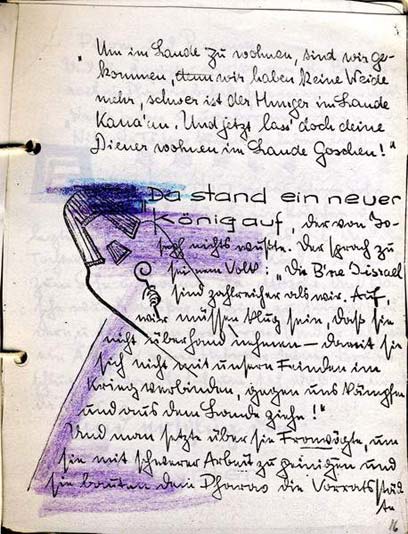 „Um im Lande zu wohnen, sind wir ge-
kommen, denn wir haben keine Weide
mehr, schwer ist der Hunger im Lande
Kana'an. Und jetzt lass' doch deine
Diener wohnen im Lande Goschen!"
Da stand ein neuer
König auf, der von Jo-
seph nichts wußte. Der sprach zu
seinem Volk: „Die B'ne Jisrael
sind zahlreicher als wir. Auf,
wir müssen klug sein, daß sie
nicht überhand nehmen – damit sie
sich nicht mit unsern Feinden im
Krieg verbinden, gegen uns kämpfen
und aus dem Lande ziehe!"
Und man setzte über sie Fronvögte, um
sie mit schwerer Arbeit zu peinigen und
sie bauten dem Pharao die Vorratsstäd
te
16